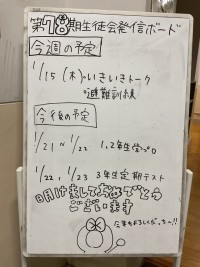 第78期生徒会発信ボード
今週の予定
1/15(木)・いきいきトーク
・避難訓練
今後の予定
1/21~1/22 1,2年生学プロ
1/22,1/23 3年生定期テスト
明けましておめでとう
ございます
今年もよろしくだっちゃー!!